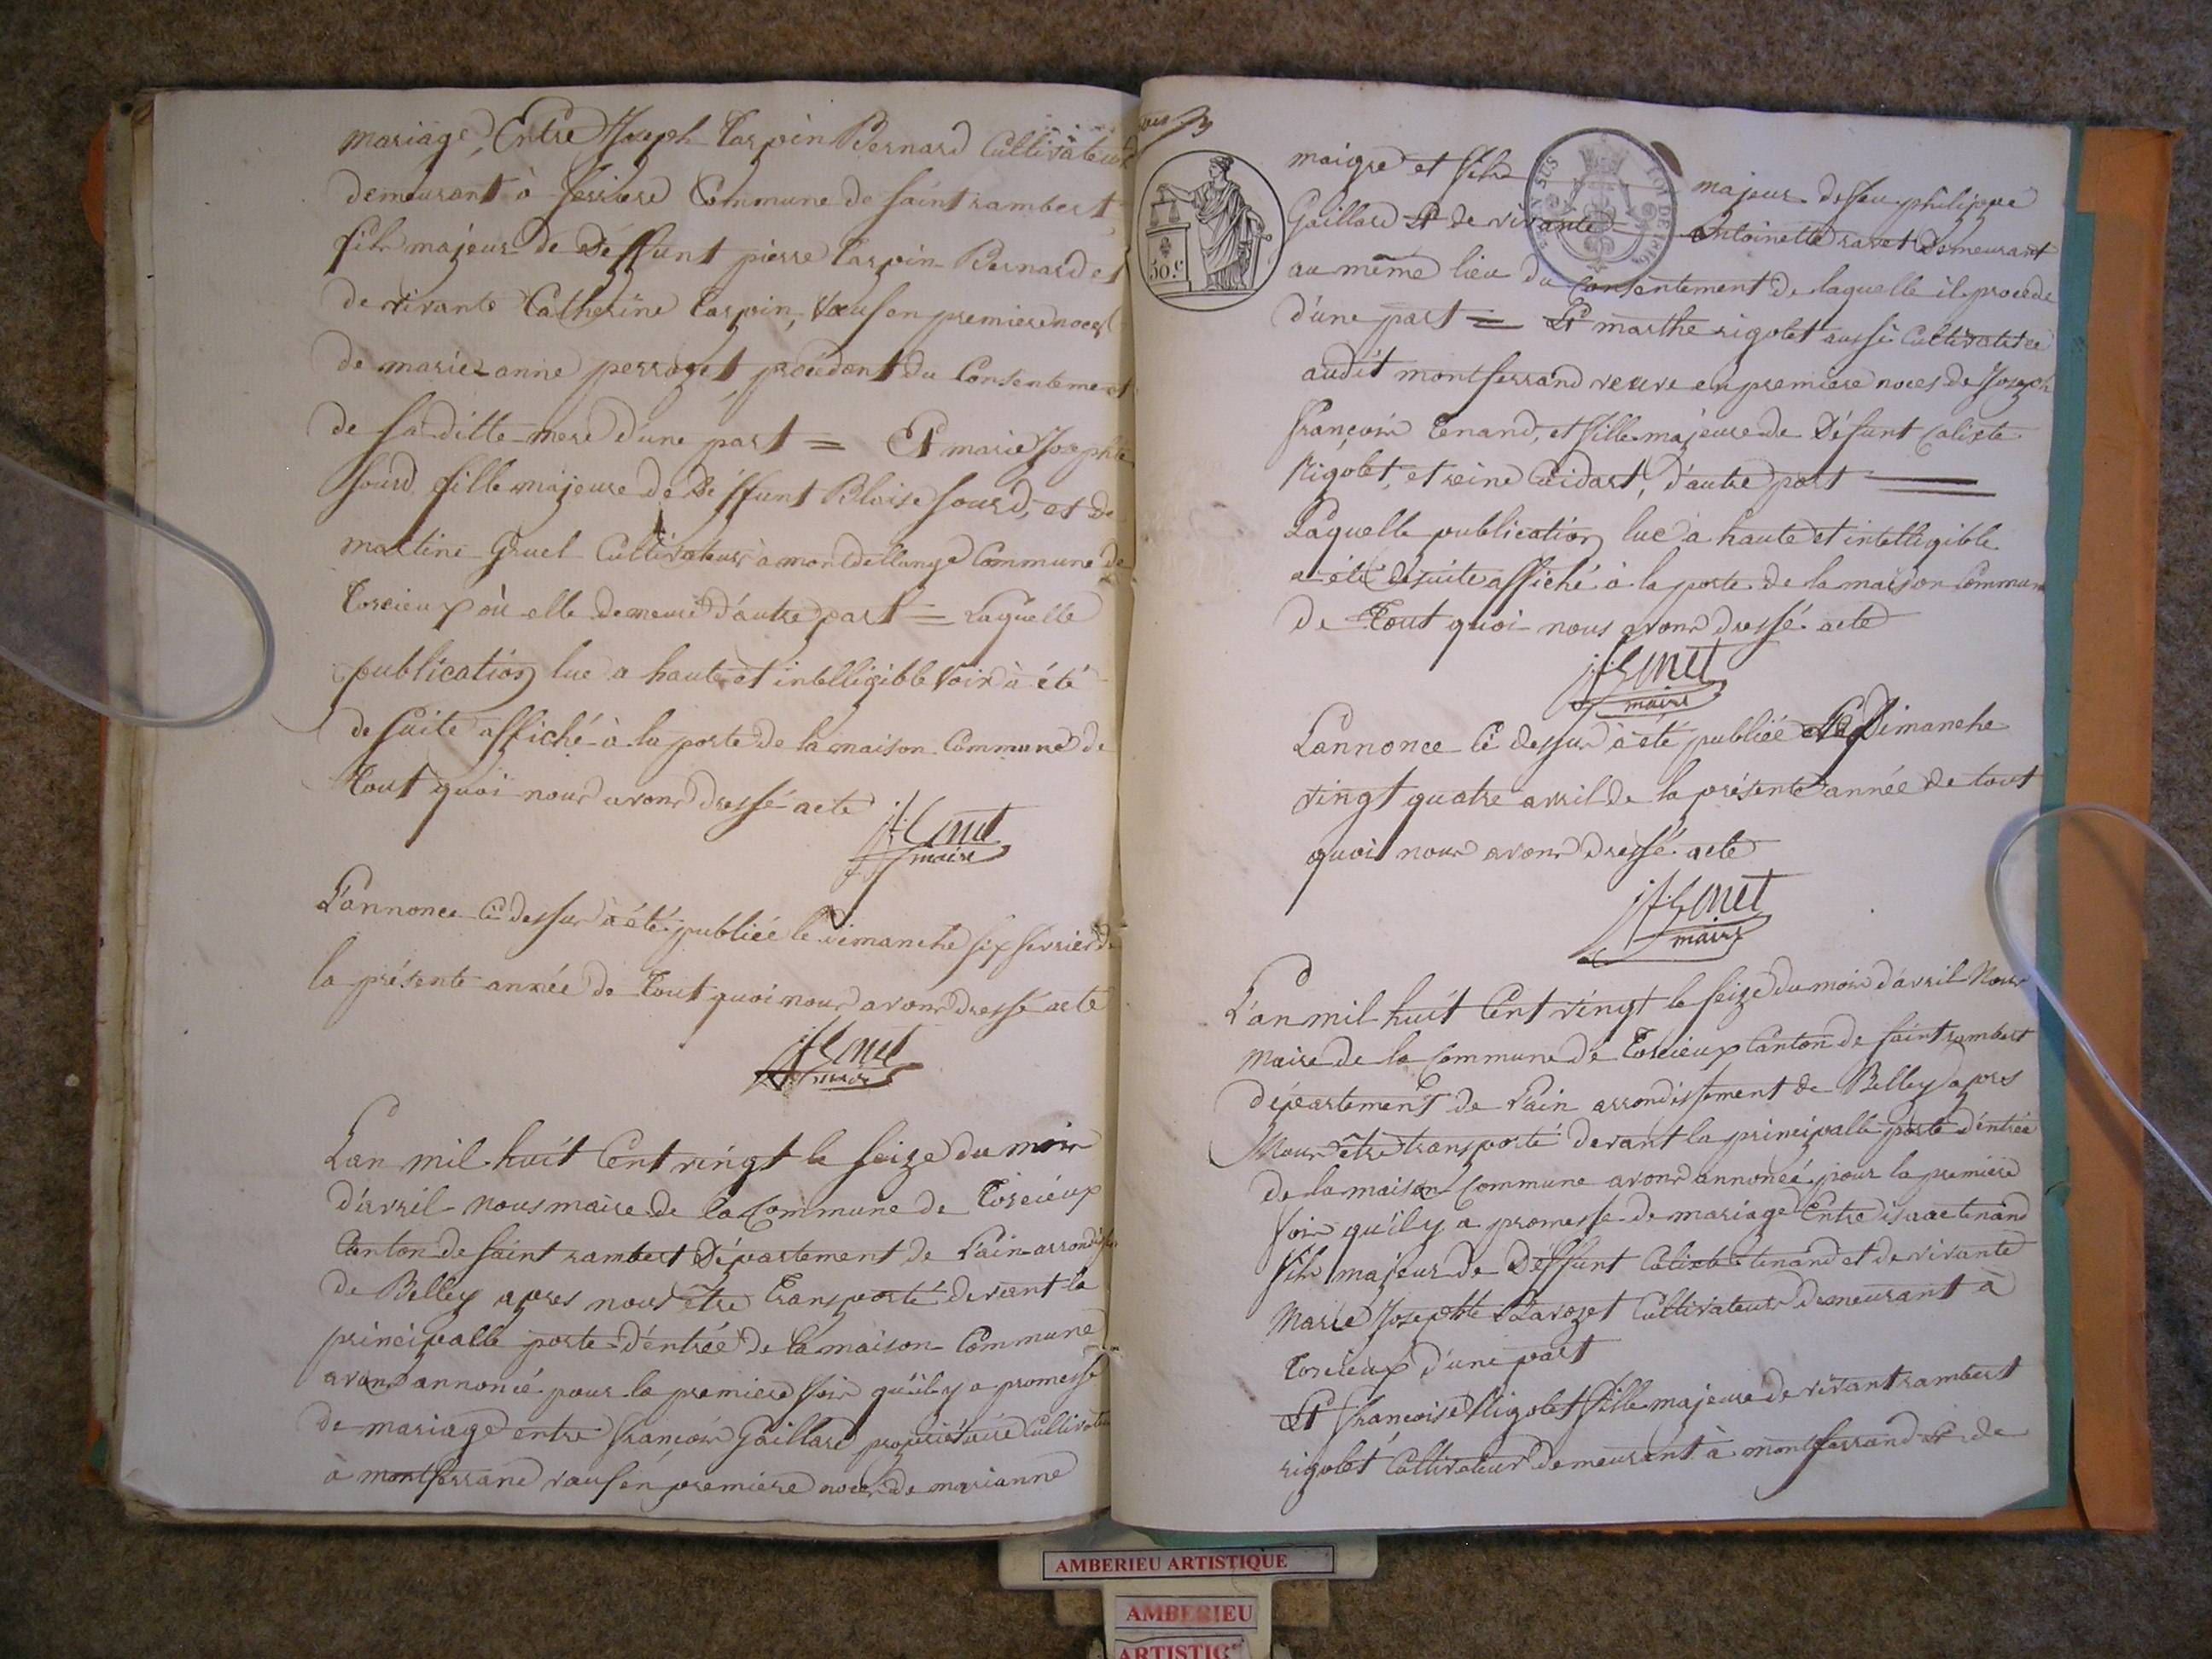 mariage, Entre Joseph Carrin Bernard Cultivateur
demeurant à Commune de saint rambert
fils majeur de Déffunt pierre Bernard et
de vivante Catherine veuf en premiere noces
de marie anne perrozet, procédant du Consentement
de sa ditte mere d'une part = Et marie Josephte
sourd fille majeure de Déffunt Blaise sourd, et de
martine Gruel Cultivateur à Commune de
Torcieux où elle demeure d'autre part = Laquelle
publication lue a haute et intelligible voix à été
de suite affiché à la porte de la maison Commune de
tout quoi nous avons dressé acte
maire
L'annonce ci dessus à été publiée le dimanche six fevrier de
la présente année de tout quoi nous avons dressé acte
maire
L'an mil huit Cent vingt le seize du mois
d'avril nous maire de la Commune de Torcieux
Canton de saint rambert Département de L'ain
de Belley apres nous être transporté devant la
principalle porte d'entrée de la maison Commune
avons annoncé pour la premiere fois qu'il y a promesse
de mariage entre françois Gaillard propriétaire Cultivateur
à montferrand veuf en premiere noces de marianne
maigre et fils majeur de feu philippe
Gaillard Et de vivante antoinette ravet Demeurant
au même lieu du consentement de laquelle il procede
d'une part = Et marthe rigolet aussi Cultivatrice
audit montferrand veuve en premiere noces de Joseph
françois Tenand, et fille majeure de Défunt Calixte
Rigolet, et reine Cuidart, d'autre part
Laquelle publication lue à haute et intelligible
a été de suite affiché à la porte de la maison Commune
De Tout quoi nous avons dressé acte
maire
L'annonce ci dessus à été publiée Le Dimanche
vingt quatre avril de la présente année de tout
quoi nous avons dressé acte
maire
L'an mil huit Cent vingt le seize du mois d'avril Nous
Maire de la Commune de Torcieux Canton de saint rambert
département de L'ain arrondissement de Belley apres
Nous être transporté devant la principalle porte d'entrée
de la maison Commune avons annoncé pour la premiere
fois qu'il y a promesse de mariage Entre isaac tenand
fils majeur de Deffunt Calixte tenand et de vivante
Marie Josephte Ravozet Cultivateur demeurant à
Torcieux d'une part
Et françoise Rigolet fille majeure de vivant rambert
rigolet Cultivateur demeurant à montferrand Et de
50.c
AMBERIEU ARTISTIQUE
AMBERIEU
ARTISTIC